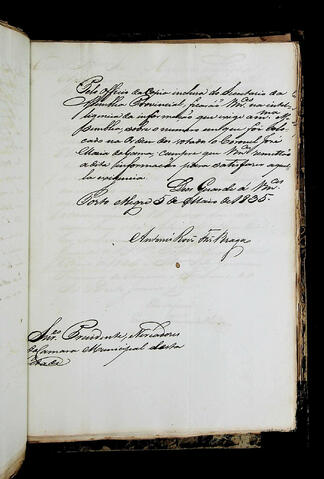 Pelo Officio da Copia inclusa do Secretario da
Assemblea Provincial, ficarão Vmces na intel-
ligencia da informação que exige a m.ma
Assemblea, sobre o numero em que foi collo-
cado na Ordem dos votados o Coronel José
Maria da Gama, cumpre que Vmces remettão
a dita informação para satisfazer aquel-
la exigencia.
Deos Guarde a Vmces
Porto Alegre 5 de Maio de 1835.
Antonio Roiz Fes Braga
Snres Presidente, e Vereadores
da Camara Municipal desta
Cidade